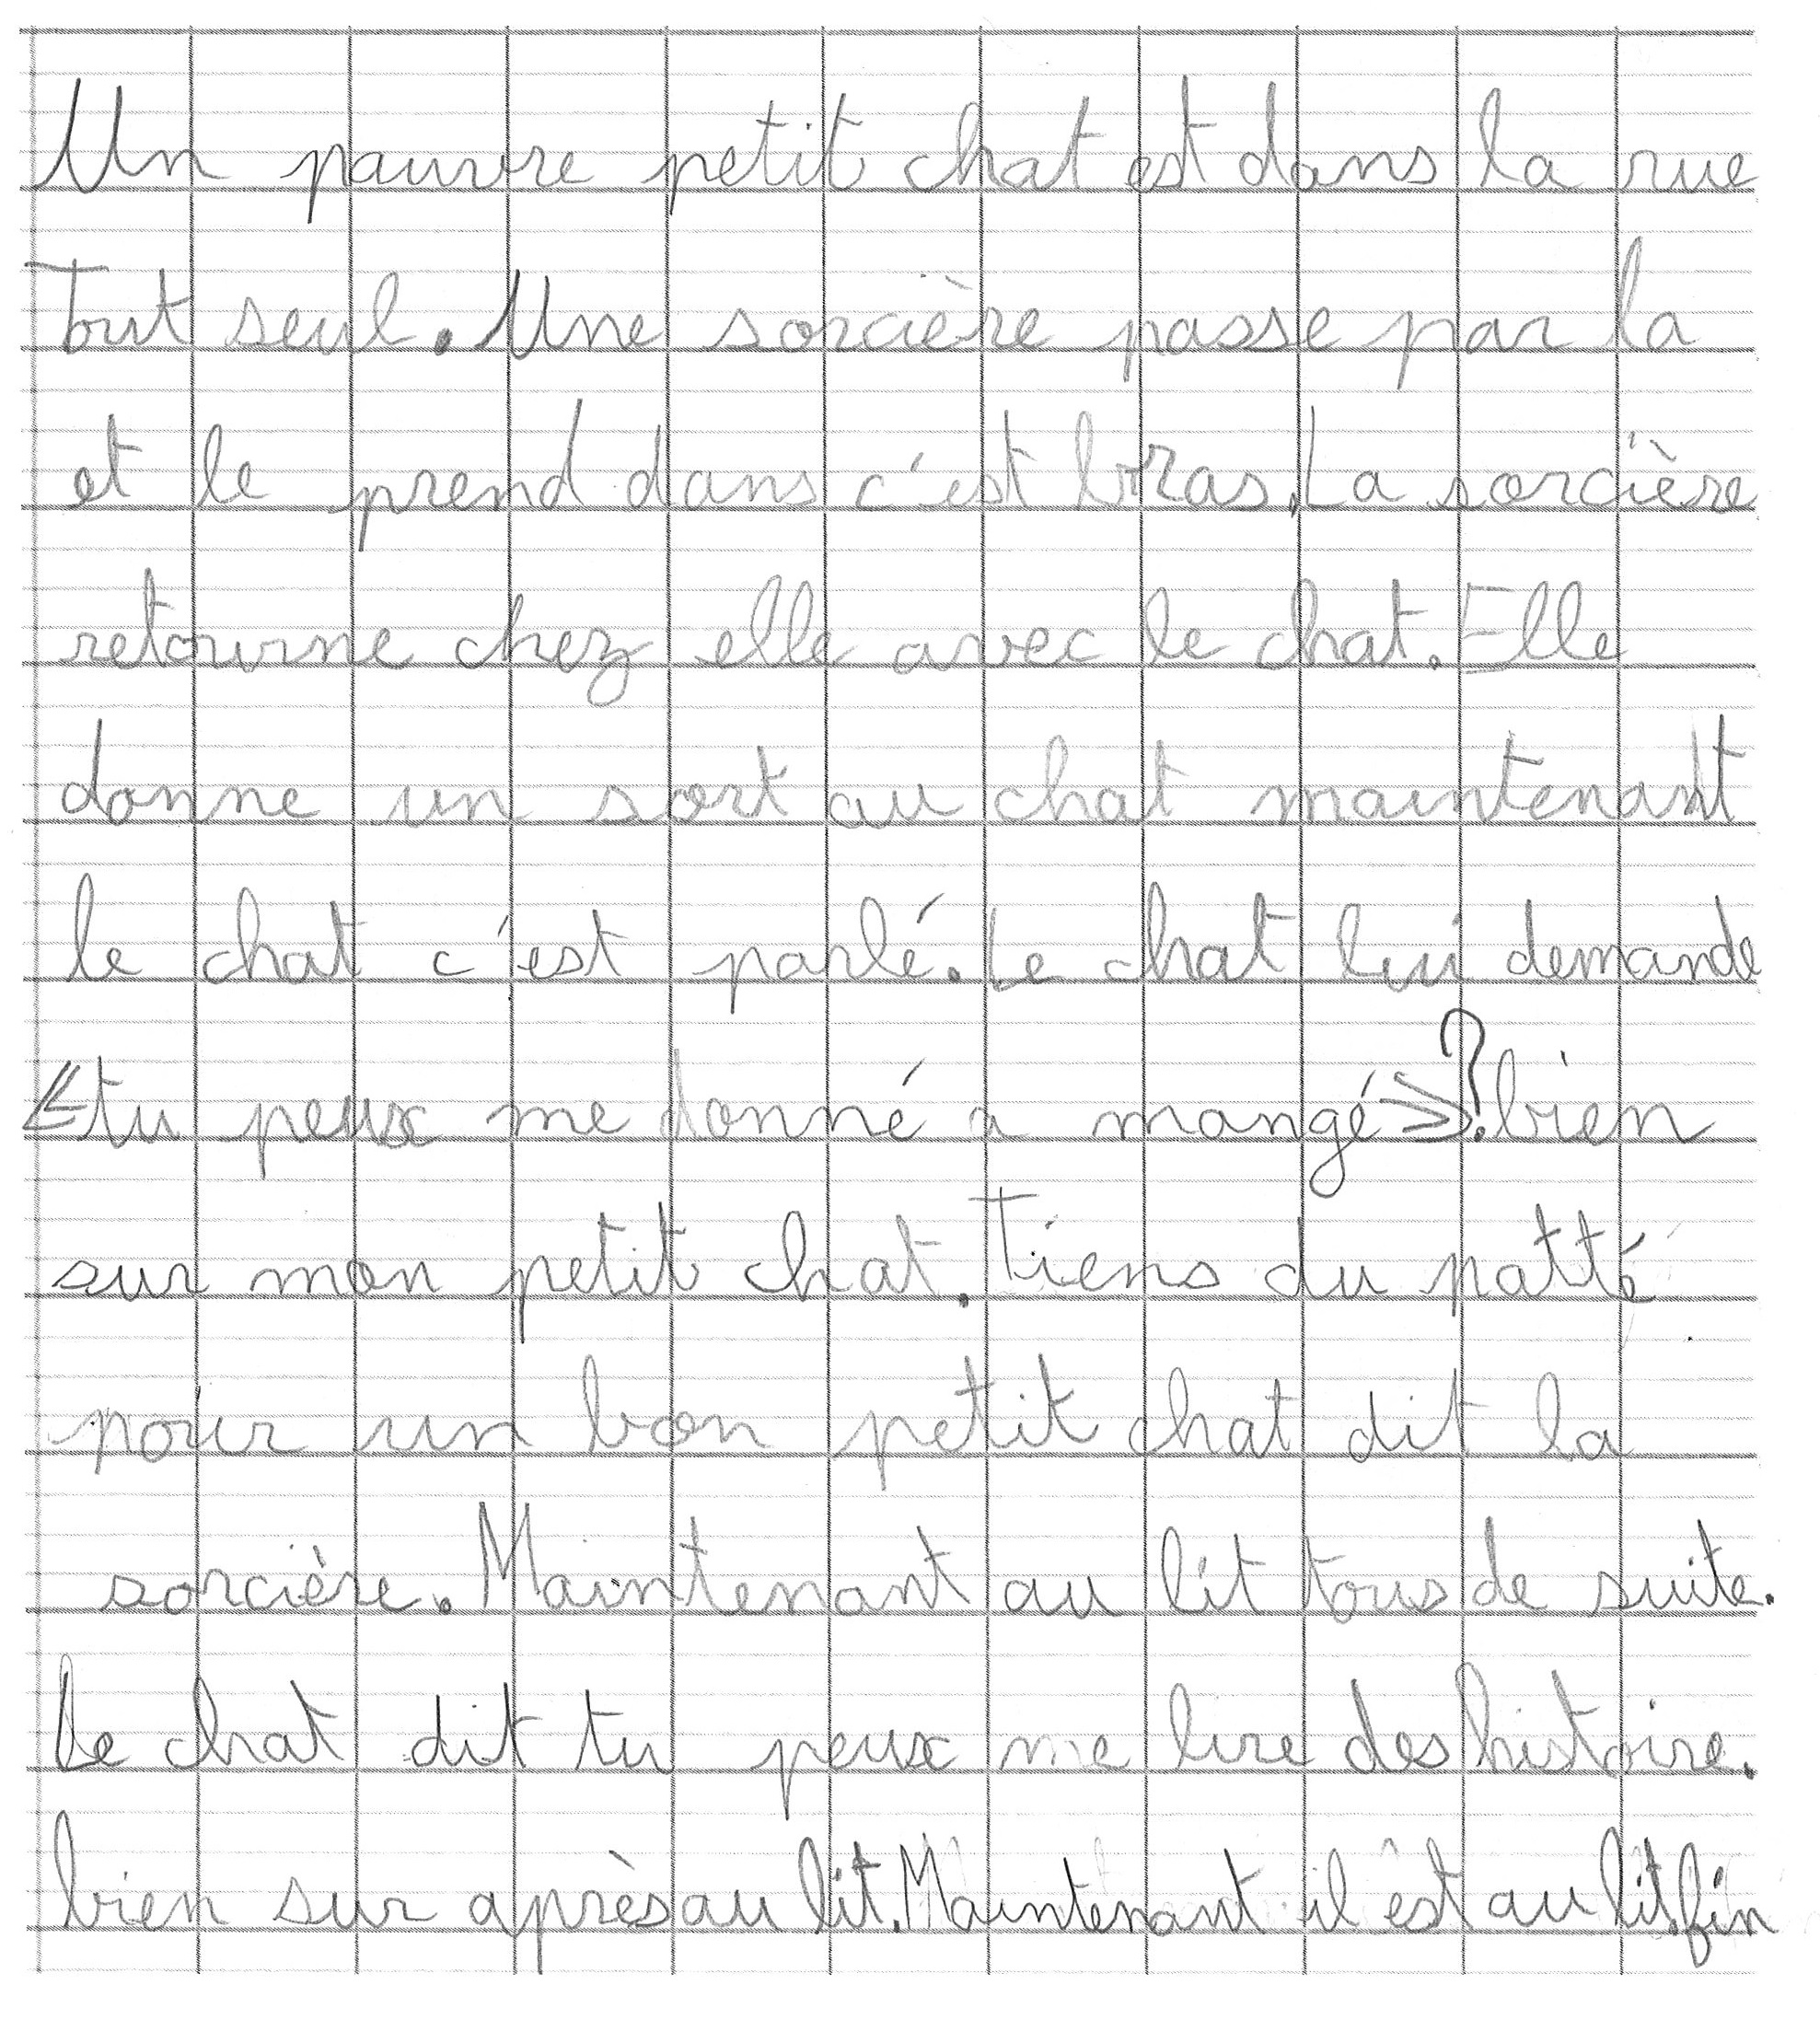 Un pauvre petit chat est dans la rue
Tout seul. Une sorcière passe par la
et le prend dans c'est bras. La sorcière
retourne chez elle avec le chat. Elle
donne un sort au chat maintenant
le chat c'est parlé. Le chat lui demande
«tu peux me donné a mangé»? bien
sur mon petit chat. Tiens du patté
pour un bon petit chat dit la
sorcière. Maintenant au lit tous de suite.
Le chat dit tu peux me lire des histoire.
bien sur après au lit. Maintenant il est au lit. fin